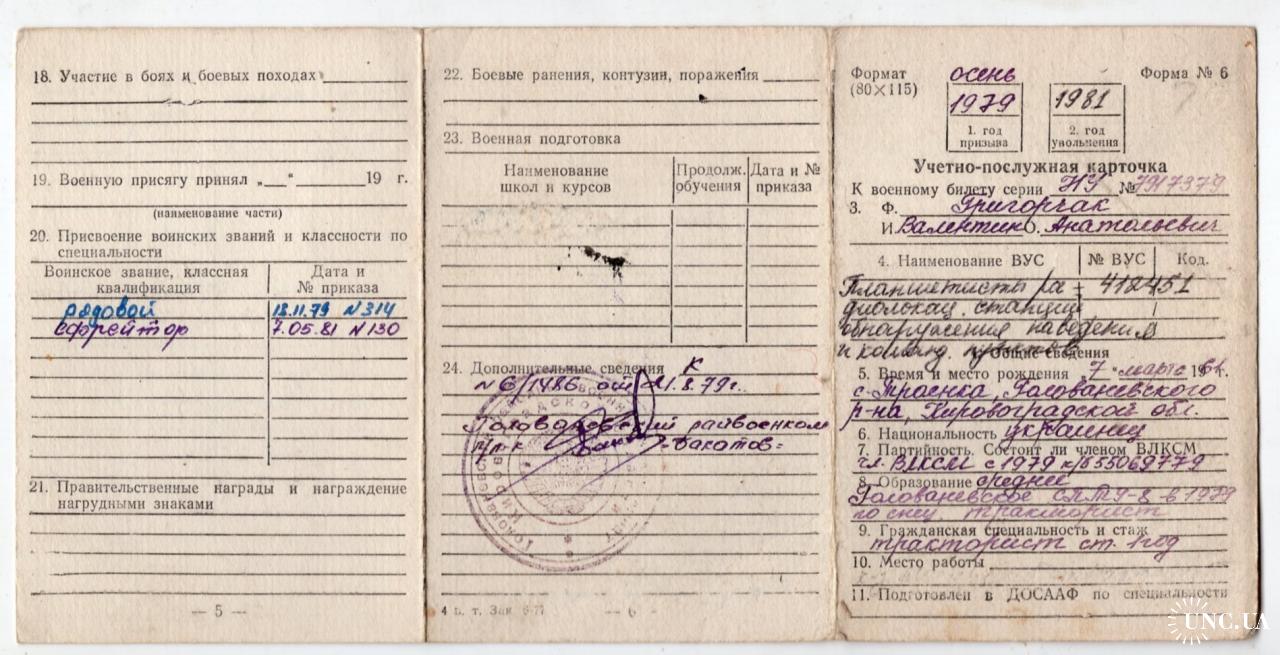 18. Участие в боях и боевых походах
19. Военную присягу принял „ “ 19 г.
(наименование части)
20. Присвоение воинских званий и классности по
специальности
Воинское звание, классная
квалификация
Дата и
№ приказа
рядовой 18.11.79 №314
ефрейтор 7.05.81 №130
21. Правительственные награды и награждение
нагрудными знаками
— 5 —
22. Боевые ранения, контузии, поражения
23. Военная подготовка
Наименование
школ и курсов
Продолж.
обучения
Дата и №
приказа
24. Дополнительные сведения К
№6/1486 от 21.8.79г.
райвоенком
п/п-к -Бакатов-
4 в. т. Зак. 6-77
— 6 —
Формат
(80×115)
осень
1979
1. год
призыва
1981
2. год
увольнения
Форма № 6
7
Учетно-послужная карточка
К военному билету серии НУ № 7917379
3. Ф. Григорчак
И. Валентин О. Анатольевич
4. Наименование ВУС № ВУС Код.
Планшетисты ра- 412451
диолокац. станций
обнаружения наведения
и команд. пунктов
Общие сведения
5. Время и место рождения „7“ марта 1961г.
с. Троянка, Голованевского
р-на, Кировоградской обл.
6. Национальность украинец
7. Партийность. Состоит ли членом ВЛКСМ
чл. ВЛКСМ с 1979 к/б 55069779
8. Образование среднее
Голованевское СПТУ-8 в 1979
по спец. тракторист
9. Гражданская специальность и стаж
тракторист ст. 1 год
10. Место работы
11. Подготовлен в ДОСААФ по специальности
UNC.UA